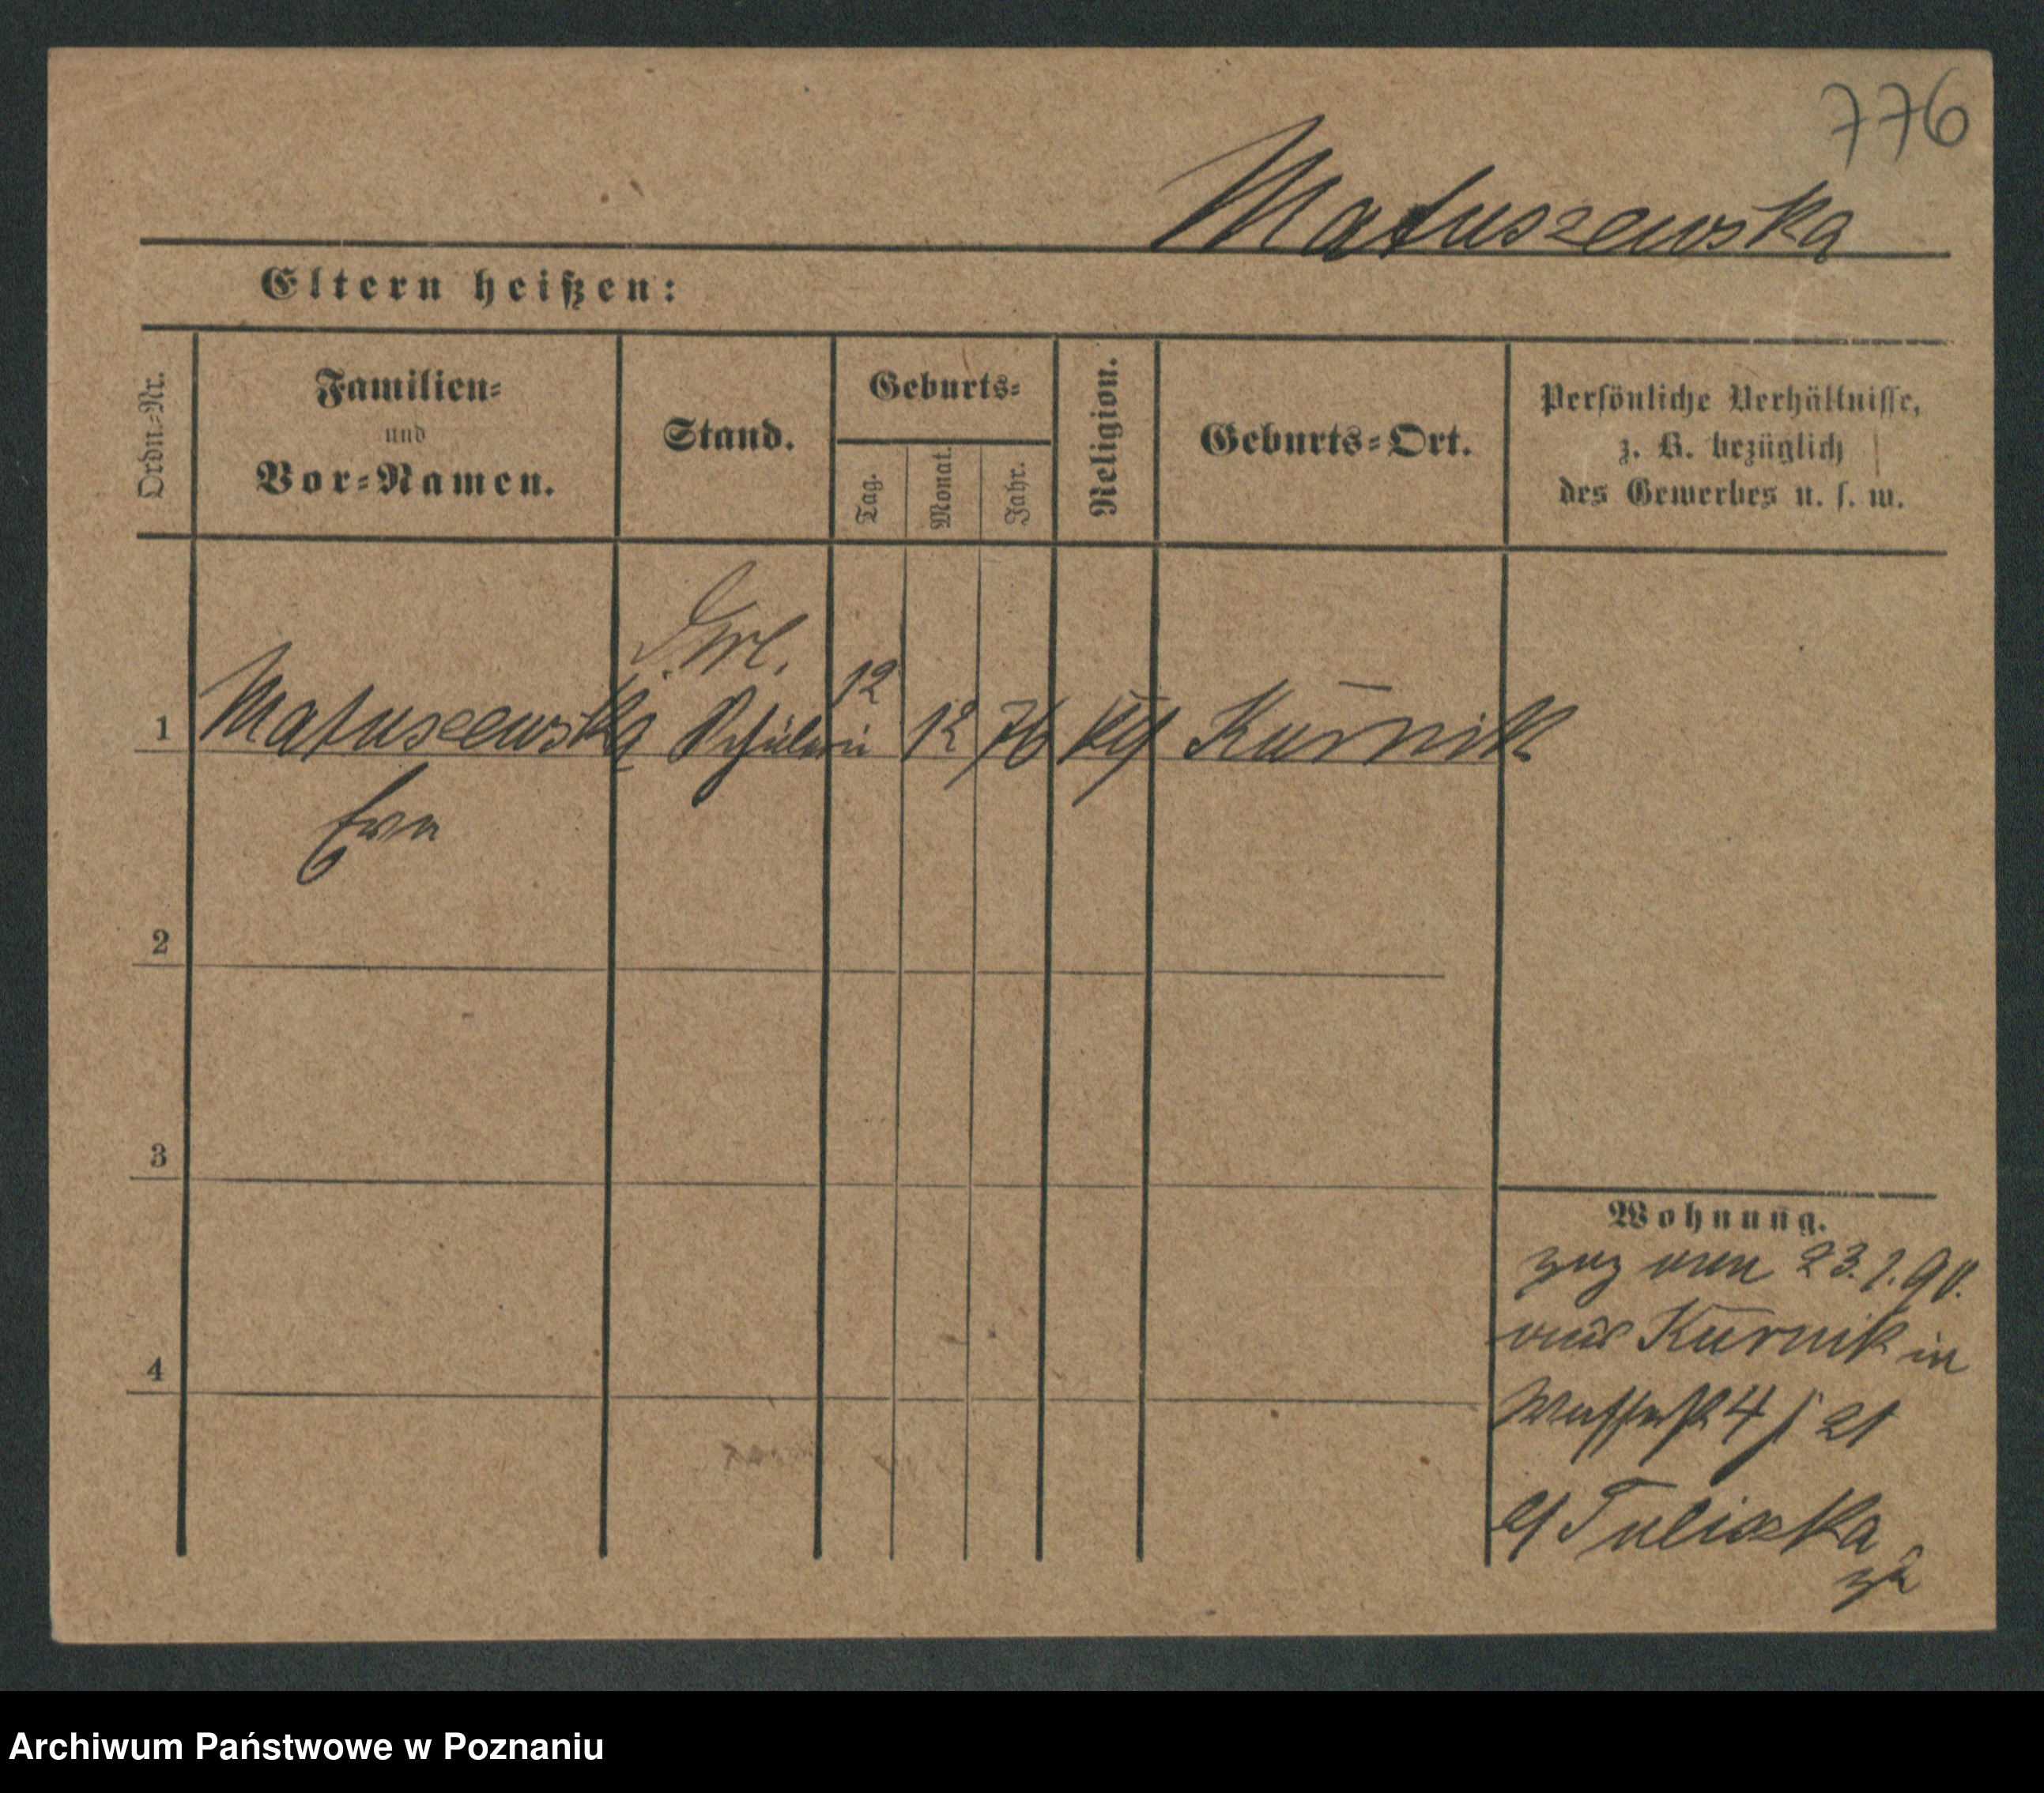 776
Matuszewska
Eltern heißen:
Ordn.-Nr.
Familien-
und
Vor-Namen.
Stand.
Geburts-
Tag.
Monat.
Jahr.
Religion.
Geburts-Ort.
Persönliche Verhältnisse,
z. B. bezüglich
des Gewerbes u. s. w.
1 Matuszewska Schülerin 12 12 76 kth Kurnik
Eva
2
3
4
Wohnung.
zug vom 23.1.90.
aus Kurnik in
4 21
b/ Tuliszka
Archiwum Państwowe w Poznaniu